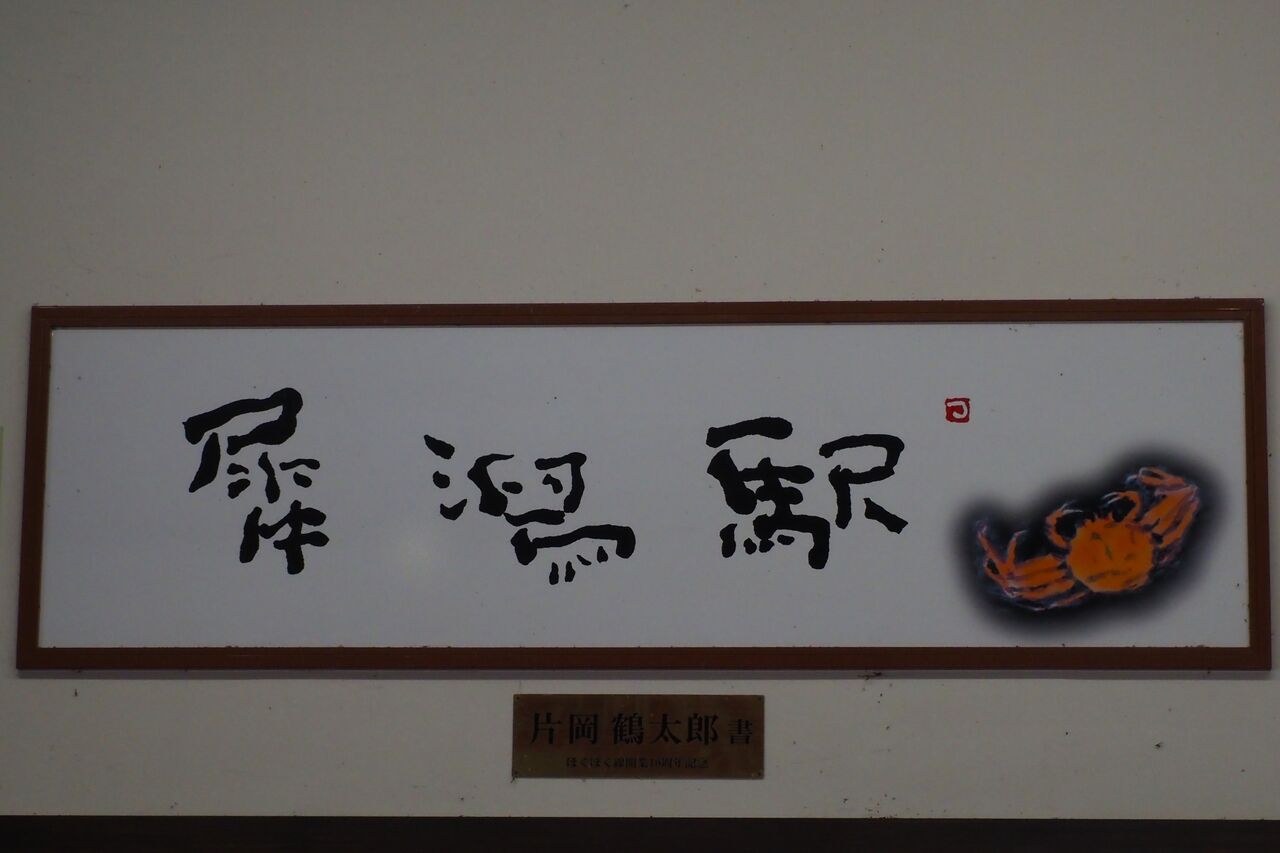 犀潟駅
片岡鶴太郎 書
ほくほく線開業10周年記念